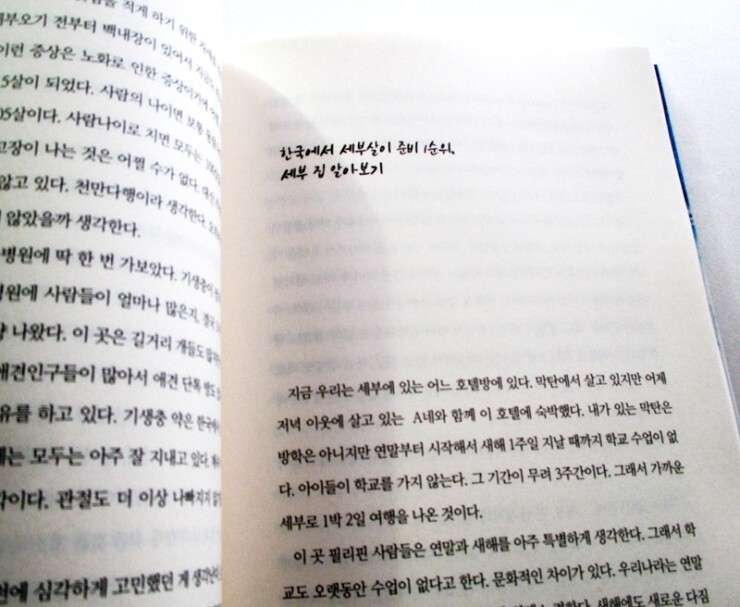 적게 하기 위한
부오기 전부터 백내장이 있어서
이런 증상은 노화로 인한 증상이기에
5살이 되었다. 사람의 나이면 보통
05살이다. 사람나이로 치면 모두는
고장이 나는 것은 어쩔 수가 없다.
않고 있다. 천만다행이라 생각한다.
않았을까 생각한다.
병원에 딱 한 번 가보았다. 기생충이
병원에 사람들이 얼마나 많은지,
나왔다. 이 곳은 길거리 개들도
애견인구들이 많아서 애견 단톡 방도
유를 하고 있다. 기생충 약은
는 모두는 아주 잘 지내고 있다.
각이다. 관절도 더 이상 나빠지지
에 심각하게 고민했던 게
한국에서 세부살이 준비 1순위,
세부 집 알아보기
지금 우리는 세부에 있는 어느 호텔방에 있다. 막탄에서 살고 있지만 어제
저녁 이웃에 살고 있는 A네와 함께 이 호텔에 숙박했다. 내가 있는 막탄은
방학은 아니지만 연말부터 시작해서 새해 1주일 지날 때까지 학교 수업이 없
다. 아이들이 학교를 가지 않는다. 그 기간이 무려 3주간이다. 그래서 가까운
세부로 1박 2일 여행을 나온 것이다.
이 곳 필리핀 사람들은 연말과 새해를 아주 특별하게 생각한다. 그래서 학
교도 오랫동안 수업이 없다고 한다. 문화적인 차이가 있다. 우리나라는 연말
새해에도 새로운 다짐